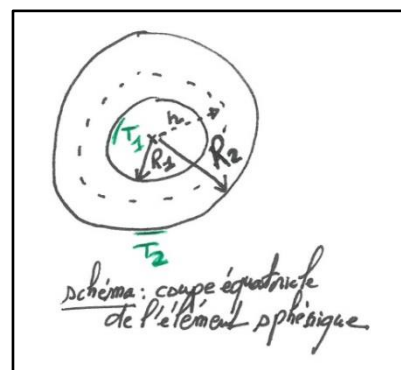 T1
r
R1
R2
T2
schéma : coupe équatoriale
de l'élément sphérique